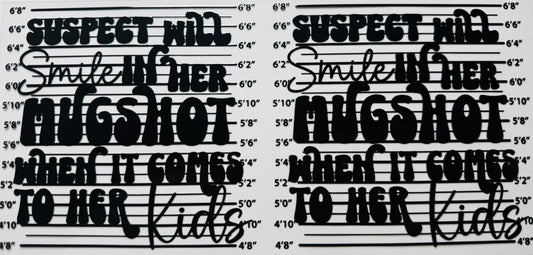 6'8" 6'8"
6'6" SUSPECT WILL 6'6"
6'4" 6'4"
6'2" Smile IN HER 6'2"
6'0" 6'0"
5'10" 5'10"
5'8" MUGSHOT 5'8"
5'6" 5'6"
5'4" WHEN IT COMES 5'4"
5'2 5'2"
5'0" TO HER Kids 5'0"
4'10" 4'10"
4'8" 4'8"
6'8" 6'8"
6'6" SUSPECT WILL 6'6"
6'4" 6'4"
6'2" Smile IN HER 6'2"
6'0" 6'0"
5'10" 5'10"
5'8" MUGSHOT 5'8"
5'6" 5'6"
5'4" WHEN IT COMES 5'4"
5'2 5'2"
5'0" TO HER Kids 5'0"
4'10" 4'10"
4'8" 4'8"